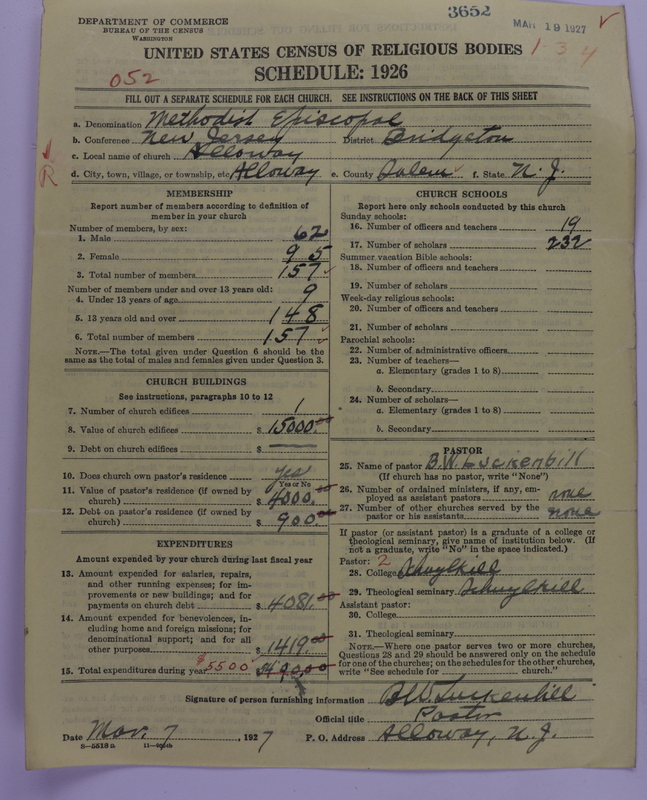 DEPARTMENT OF COMMERCE
BUREAU OF THE CENSUS
WASHINGTON
3652
MAR 19 1927
UNITED STATES CENSUS OF RELIGIOUS BODIES 1-3 4
SCHEDULE: 1926
052
FILL OUT A SEPARATE SCHEDULE FOR EACH CHURCH. SEE INSTRUCTIONS ON THE BACK OF THIS SHEET
a. Denomination Methodist Episcopal
b. Conference New Jersey District Bridgeton
c. Local name of church Alloway
R
d. City, town, village, or township, etc Alloway e. County Salem f. State N. J.
MEMBERSHIP
Report number of members according to definition of
member in your church
Number of members, by sex:
1. Male 62
2. Female 95
3. Total number of members 157
Number of members under and over 13 years old:
4. Under 13 years of age 9
5. 13 years old and over 148
6. Total number of members 157
NOTE.—The total given under Question 6 should be the
same as the total of males and females given under Question 3.
CHURCH BUILDINGS
See instructions, paragraphs 10 to 12
7. Number of church edifices 1
8. Value of church edifices $ 15000.00
9. Debt on church edifices $
10. Does church own pastor's residence yes
Yes or No
11. Value of pastor's residence (if owned by
church) $ 4000.00
12. Debt on pastor's residence (if owned by
church) $ 900.00
EXPENDITURES
Amount expended by your church during last fiscal year
13. Amount expended for salaries, repairs,
and other running expenses; for im-
provements or new buildings; and for
payments on church debt $ 4081.00
14. Amount expended for benevolences, in-
cluding home and foreign missions; for
denominational support; and for all
other purposes $ 1419.00
15. Total expenditures during year $5500
CHURCH SCHOOLS
Report here only schools conducted by this church
Sunday schools:
16. Number of officers and teachers 19
17. Number of scholars 232
Summer vacation Bible schools:
18. Number of officers and teachers
19. Number of scholars
Week-day religious schools:
20. Number of officers and teachers
21. Number of scholars
Parochial schools:
22. Number of administrative officers
23. Number of teachers—
a. Elementary (grades 1 to 8)
b. Secondary
24. Number of scholars—
a. Elementary (grades 1 to 8)
b. Secondary
PASTOR
25. Name of pastor B.W. Luckenbill
(If church has no pastor, write "None")
26. Number of ordained ministers, if any, em-
ployed as assistant pastors none
27. Number of other churches served by the
pastor or his assistants none
If pastor (or assistant pastor) is a graduate of a college or
theological seminary, give name of institution below. (If
not a graduate, write "No" in the space indicated.)
Pastor: 2
28. College Schuylkill
29. Theological seminary Schuylkill
Assistant pastor:
30. College
31. Theological seminary
NOTE.—Where one pastor serves two or more churches,
Questions 28 and 29 should be answered only on the schedule
for one of the churches; on the schedules for the other churches,
write "See schedule for church."
Signature of person furnishing information B.W. Luckenbill
Official title Pastor
Date Mar. 7, 1927 P. O. Address Alloway, N. J.